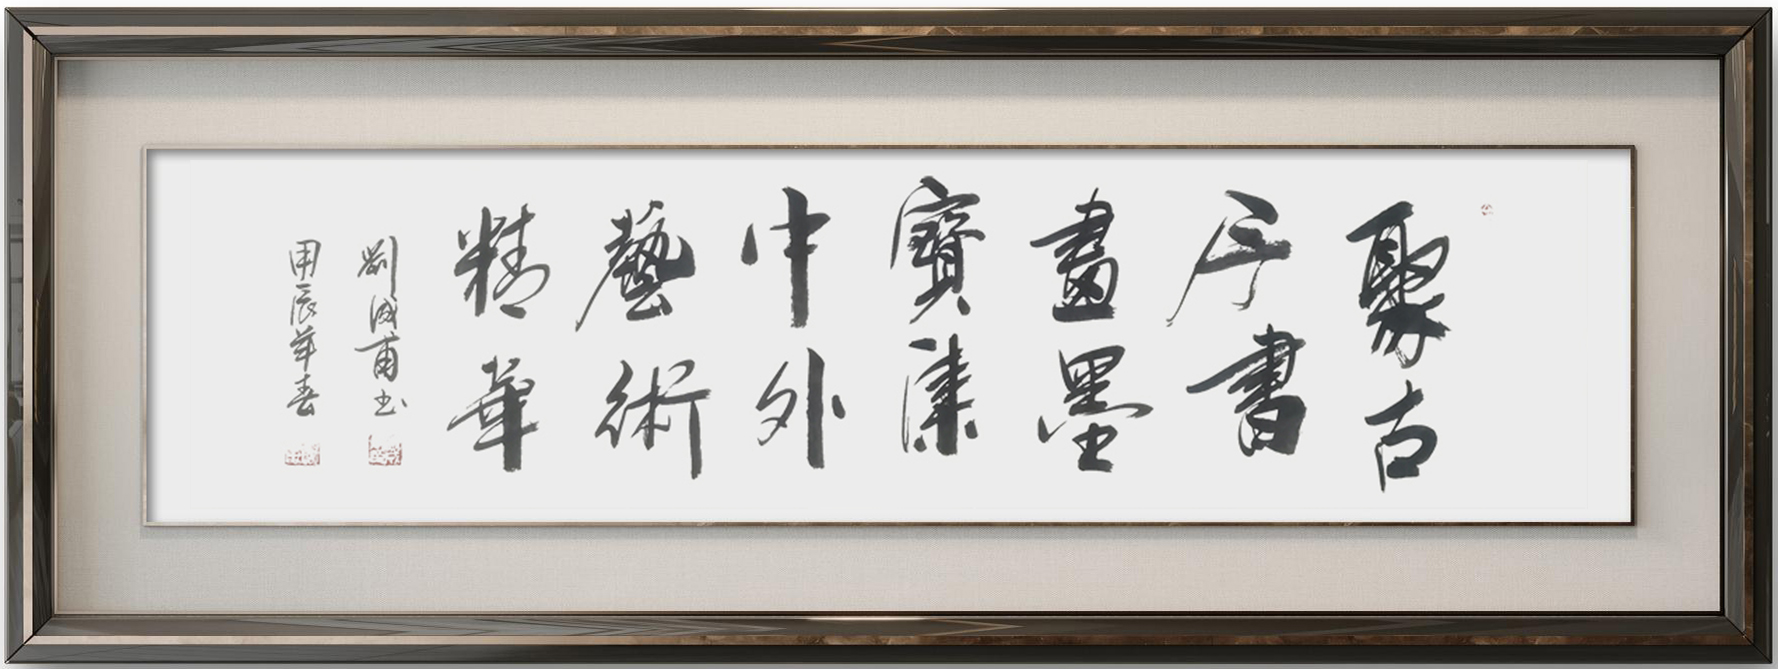 聚古
今書
畫墨
寶
中外
藝術
精華
劉甫書
甲辰年春